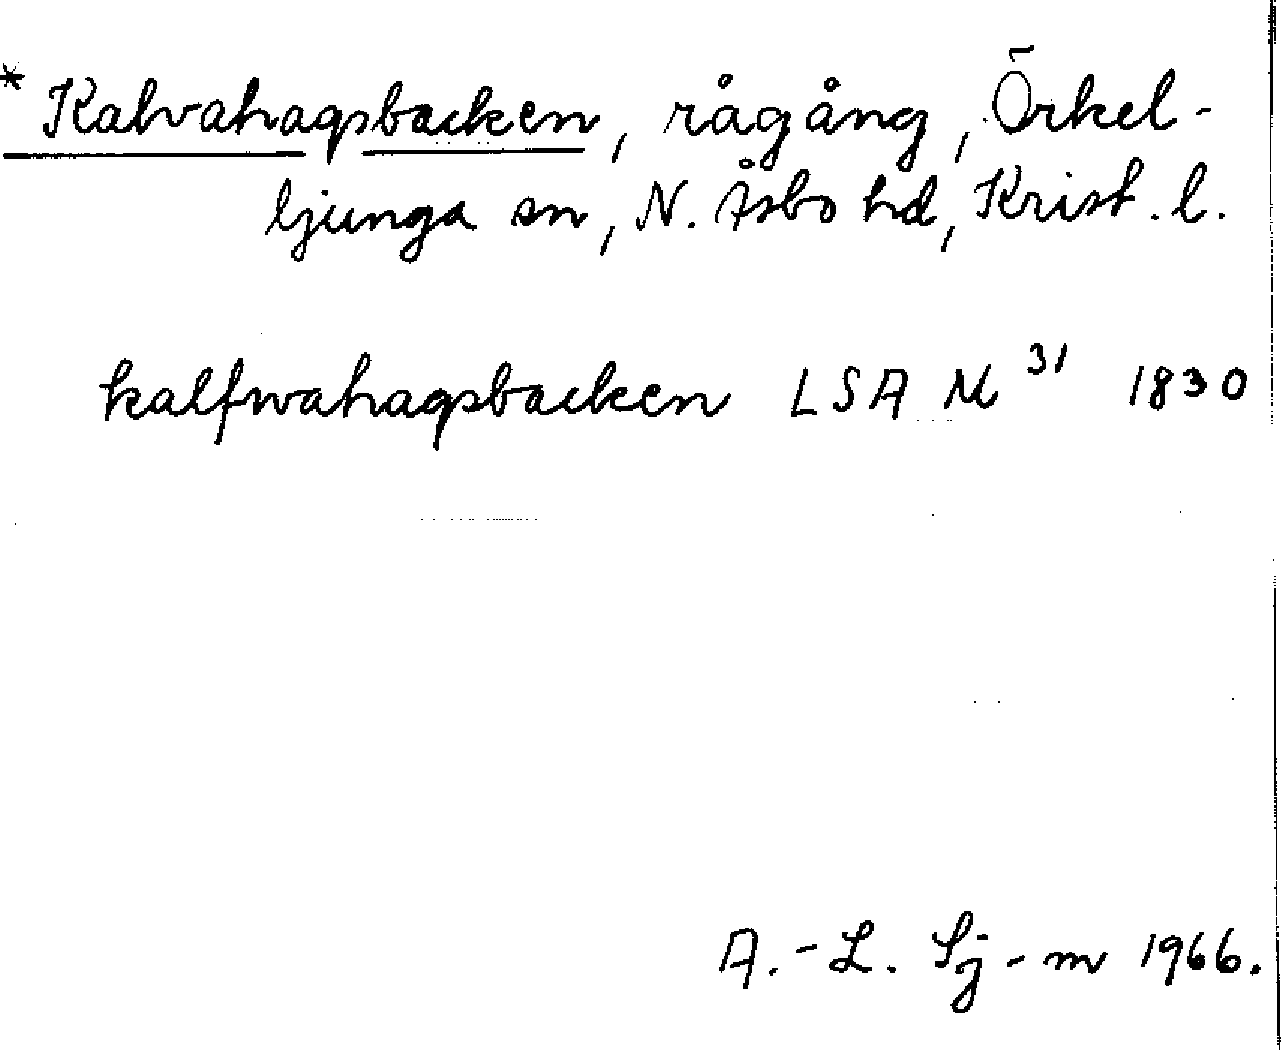 * Kalvahagsbacken, rågång, Örkel-
ljunga sn, N. Åsbo hd, Krist. l.
kalfwahagsbacken LSA M 31 1830
A.-L. Sj-m 1966.